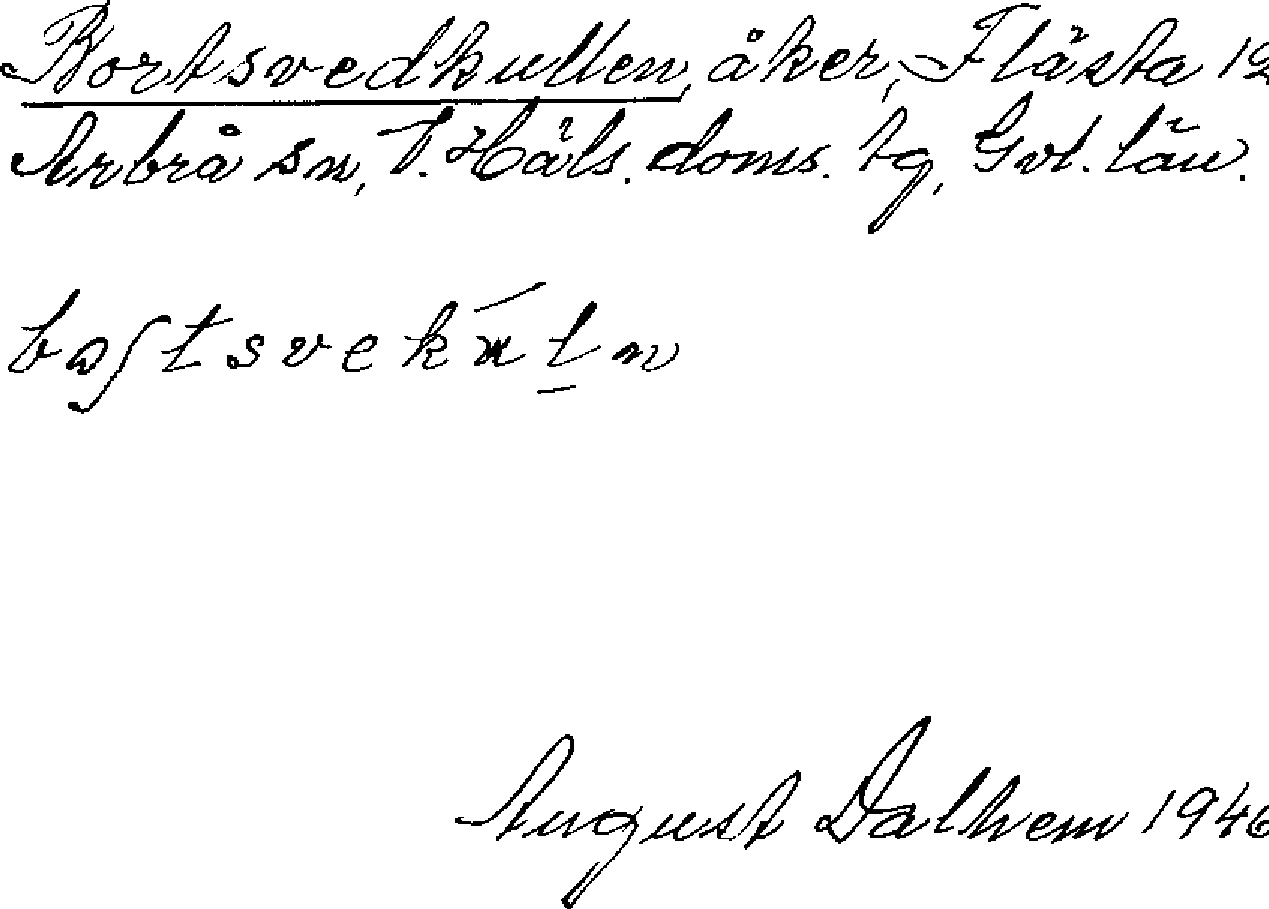 Bortsvedkullen, åker, Flästa 12
Arbrå sn, V. Häls. doms. tg, Gvl. län.
August Dalhem 1946